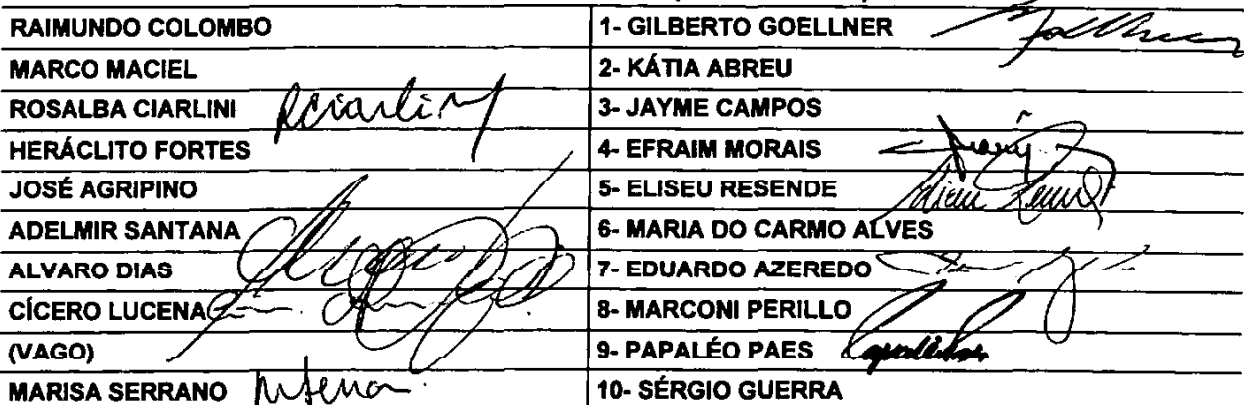 RAIMUNDO COLOMBO 1- GILBERTO GOELLNER
MARCO MACIEL 2- KÁTIA ABREU
ROSALBA CIARLINI RCiarlini 3- JAYME CAMPOS
HERÁCLITO FORTES 4- EFRAIM MORAIS
JOSÉ AGRIPINO 5- ELISEU RESENDE
ADELMIR SANTANA 6- MARIA DO CARMO ALVES
ALVARO DIAS 7- EDUARDO AZEREDO
CÍCERO LUCENA 8- MARCONI PERILLO
(VAGO) 9- PAPALÉO PAES
MARISA SERRANO 10- SÉRGIO GUERRA